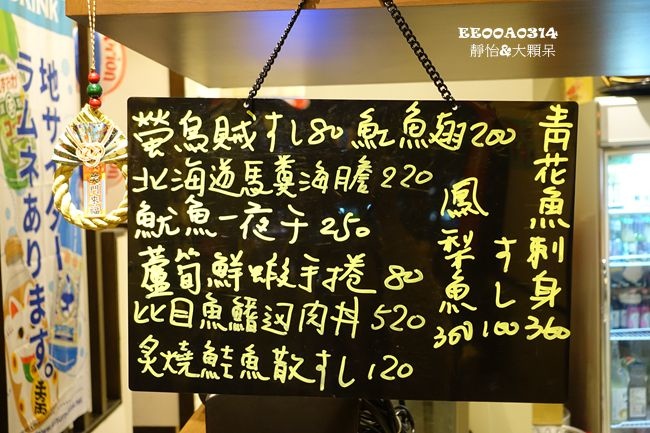 EE00A0314
靜怡&大顆呆
螢烏賊すし80 魟魚翅200
北海道馬糞海膽220
魷魚一夜干250
蘆筍鮮蝦手捲80
比目魚鰭边肉丼520
炙燒鮭魚散すし120
鳳梨魚300
すし100
青花魚刺身360
DRINK
地サイダー
ラムネあります。
笑門来福